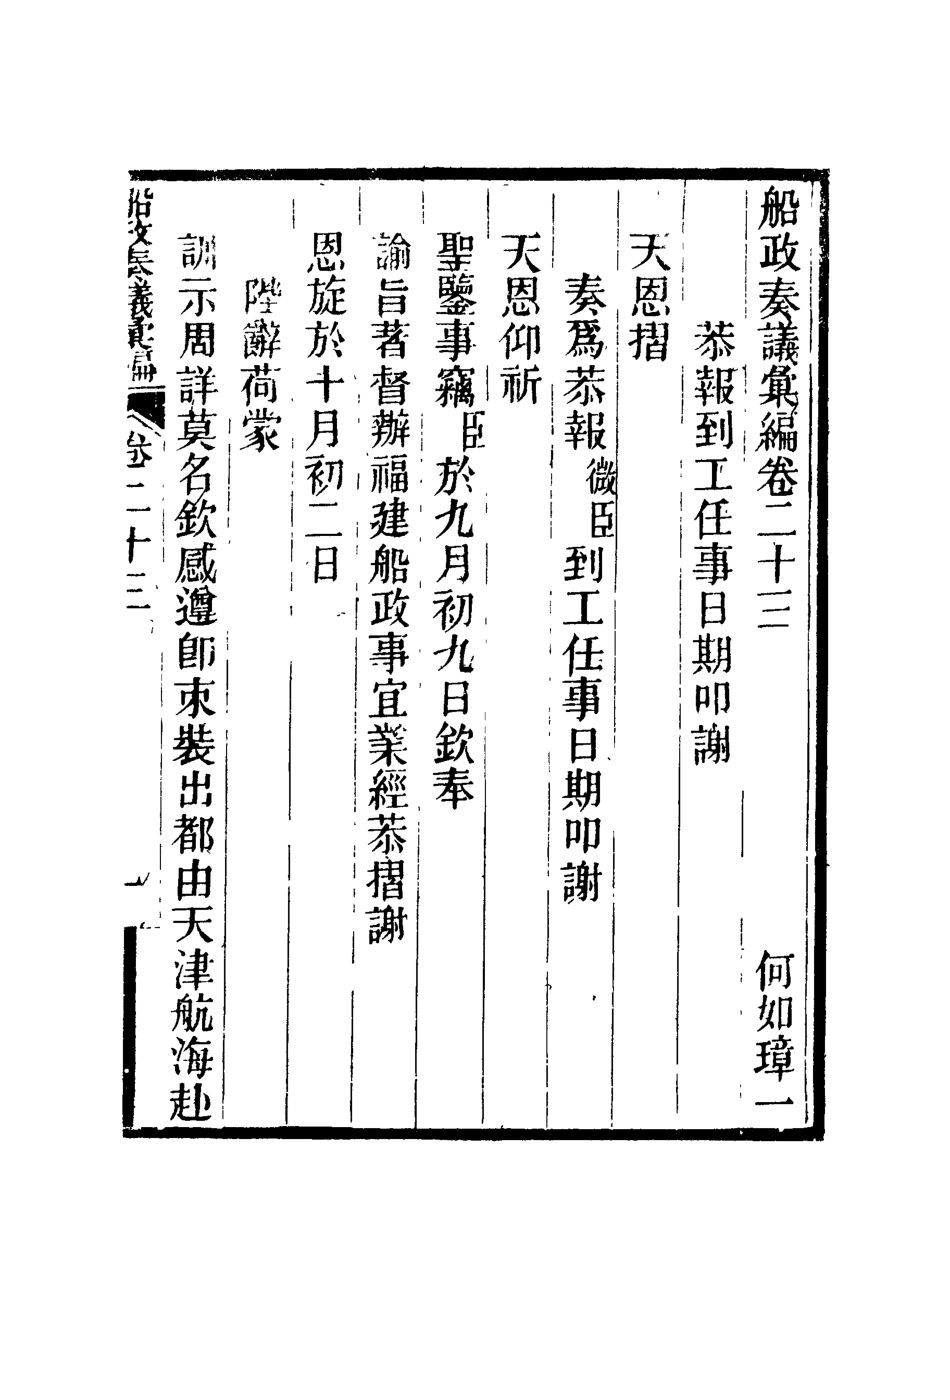 船政奏議彙編卷二十三　何如璋一
恭報到工任事日期叩謝
天恩摺
奏爲恭報微臣到工任事日期叩謝
天恩仰祈
聖鑒事竊臣於九月初九日欽奉
諭旨著督辦福建船政事宜業經恭摺謝
恩旋於十月初二日
陛辭荷蒙
訓示周詳莫名欽感遵卽束裝出都由天津航海赴
船政奏議彙編　卷二十三　一